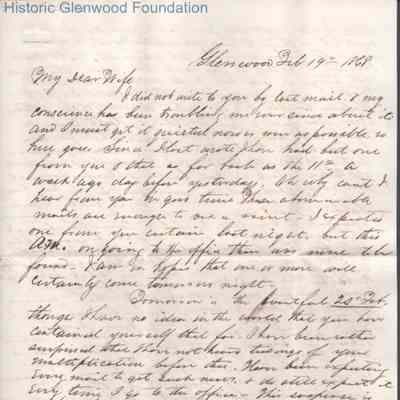 Historic Glenwood Foundation
Glenwood Feb 19th 1868
My Dear Wife
I did not write to you by last mail & my
conscience has been troubling me ever since about it
and I must get it quieted as soon as possible so
here goes. Since I last wrote I have had but one
from you & that as far back as the 11th a
week ago day before yesterday. Oh why can't I
hear from you in good time these abominable
mails are enough to vex a saint - I expected
one from you certain last night, but this
A.M. on going to the office there was none to be
found - I am in hopes that one or more will
certainly come tomorrow night.
Tomorrow is the eventful 20 Feb.
though I have no idea in the world that you have
contained yourself that far. I have been rather
surprised that I have not heard tidings of your
multiplication before this. Have been expecting
every mail to get such news, & do still expect it
every time I go to the office - This suspense is